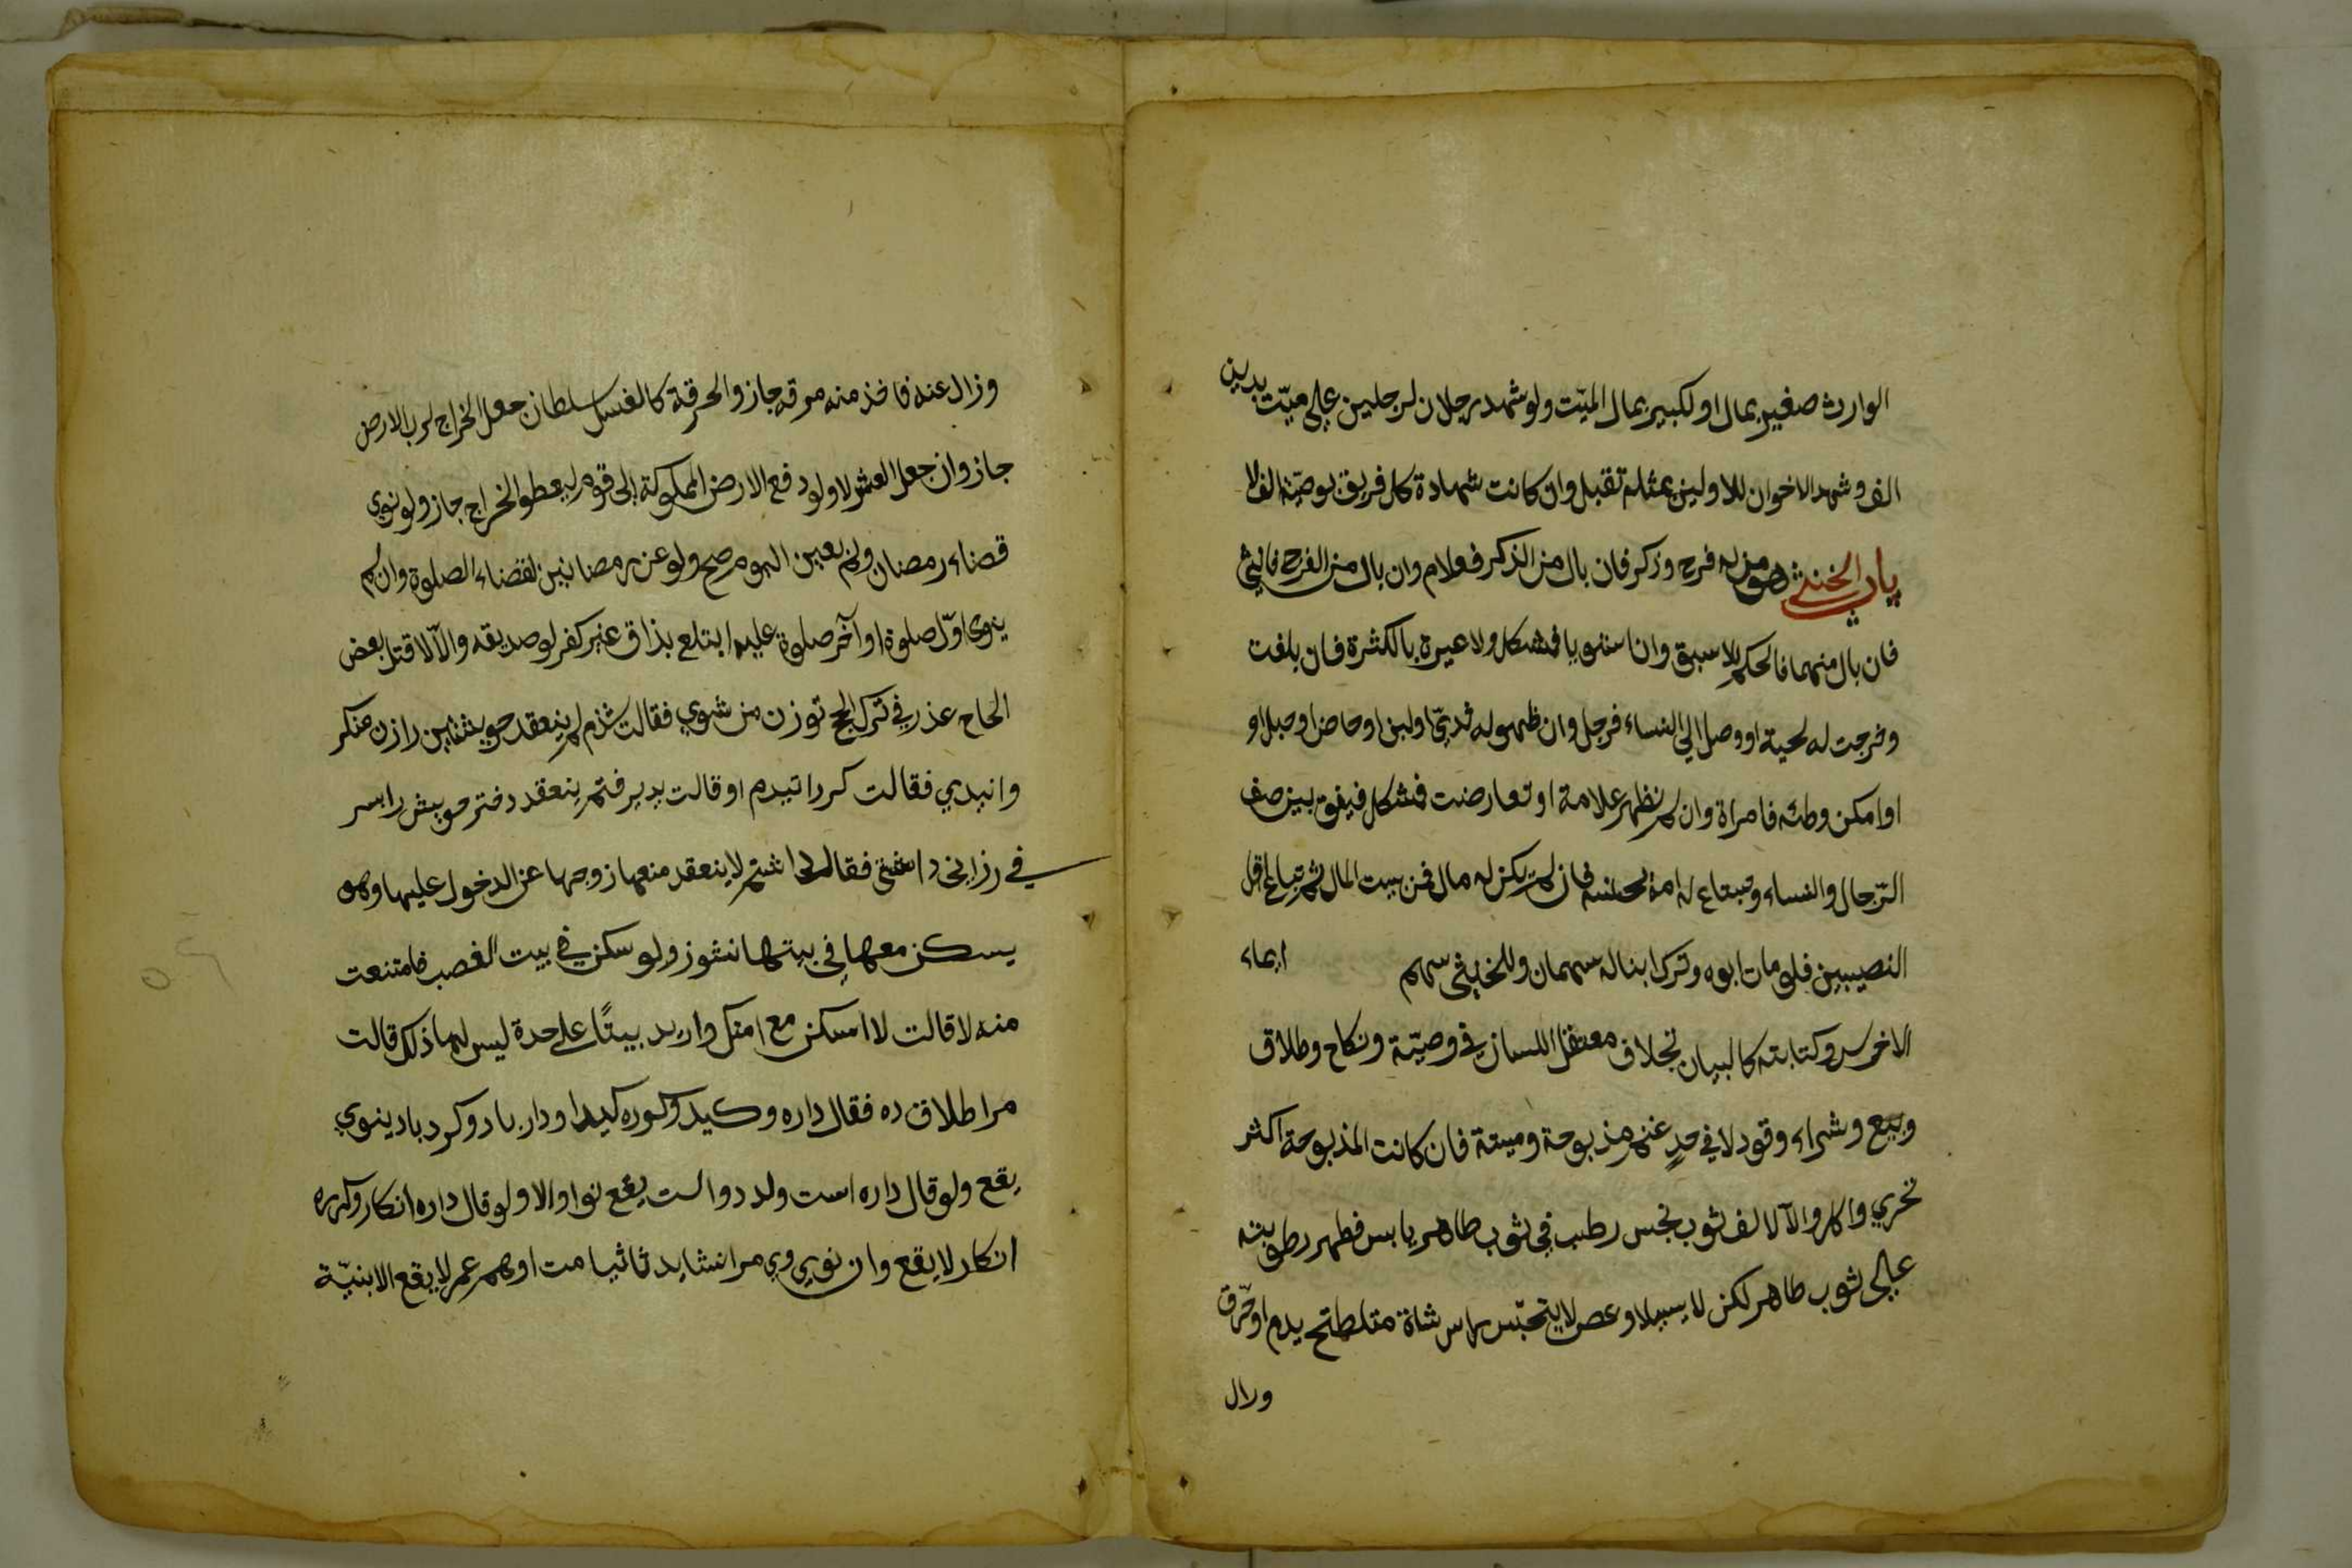 الوارث صغير بمال او لكبير بمال الميّت ولو شهد رجلان لرجلين على ميّت بدين
الف وشهد الاخوان للاولين بمثله تقبل وان كانت شهادة كل فريق بوصيّة الف لا
باب الخنثى هو من له فرج وذكر فان بال من الذكر فغلام وان بال من الفرج فانثى
فان بال منهما فالحكم للاسبق وان استويا فمشكل ولا عبرة بالكثرة فان بلغت
وخرجت له لحية او وصل الى النساء فرجل وان ظهر له ثدي او لبن او حاض او حبل او
او امكن وطئه فامراة وان لم تظهر علامة او تعارضت فمشكل فيقف بين صف
الرّجال والنساء وتبتاع له امة لختنه فان لم يكن له مال فمن بيت المال ثم تباع له اقل
النصيبين فلو مات ابوه وترك ابنا له سهمان وللخنثى سهم ايماء
الاخرس وكتابته كالبيان بخلاف معتقل اللسان في وصيّة ونكاح وطلاق
وبيع وشراء وقود لا في حدٍ غنم مذبوحة وميتة فان كانت المذبوحة اكثر
تحري واكل والآلا لف ثوب نجس رطب في ثوب طاهر يابس فظهر رطوبته
على ثوب طاهر لكن لا يسيل لو عصر لا يتنجّس راس شاة متلطخ بدم احرق
وزال
وزال عنه فاخذ منه مرقه جاز والحرقة كالغسل سلطان جعل الخراج لرب الارض
جاز وان جعل العشر لا ولو دفع الارض المملوكة الى قوم ليعطوا الخراج جاز ولو نوى
قضاء رمضان ولم يعين اليوم صح ولو عن رمضانين لقضاء الصلوة وان لم
ينوى اوّل صلوة او آخر صلوة عليه ابتلع بذاق غير كفر لو صديقه والّا لا قتل بعض
الحاج عذر في ترك الحج توزن من شوي فقالت شدم لم ينعقد خويشتن را زن من كر
وانيدي فقالت كردانيدم او قالت بديرفتم ينعقد دختر خويش را بسر
في ارزاني داشتي فقال داشتم لا ينعقد منعها زوجها عن الدخول عليها وهو
يسكن معها في بيتها نشوز ولو سكن في بيت الغصب فامتنعت
منه لا قالت لا اسكن مع امتك واريد بيتًا على حدة ليس لها ذلك قالت
مرا طلاق ده فقال داره وكيد وكرره كيدا ودار باد وكرد باد ينوي
يقع ولو قال داره است ولد دوالست يقع نوا اولا ولو قال داره انكار وكرره
انكار لا يقع وان نوى وي مرا نشايد تا قيامت او همه عمر لا يقع الا بنيّة